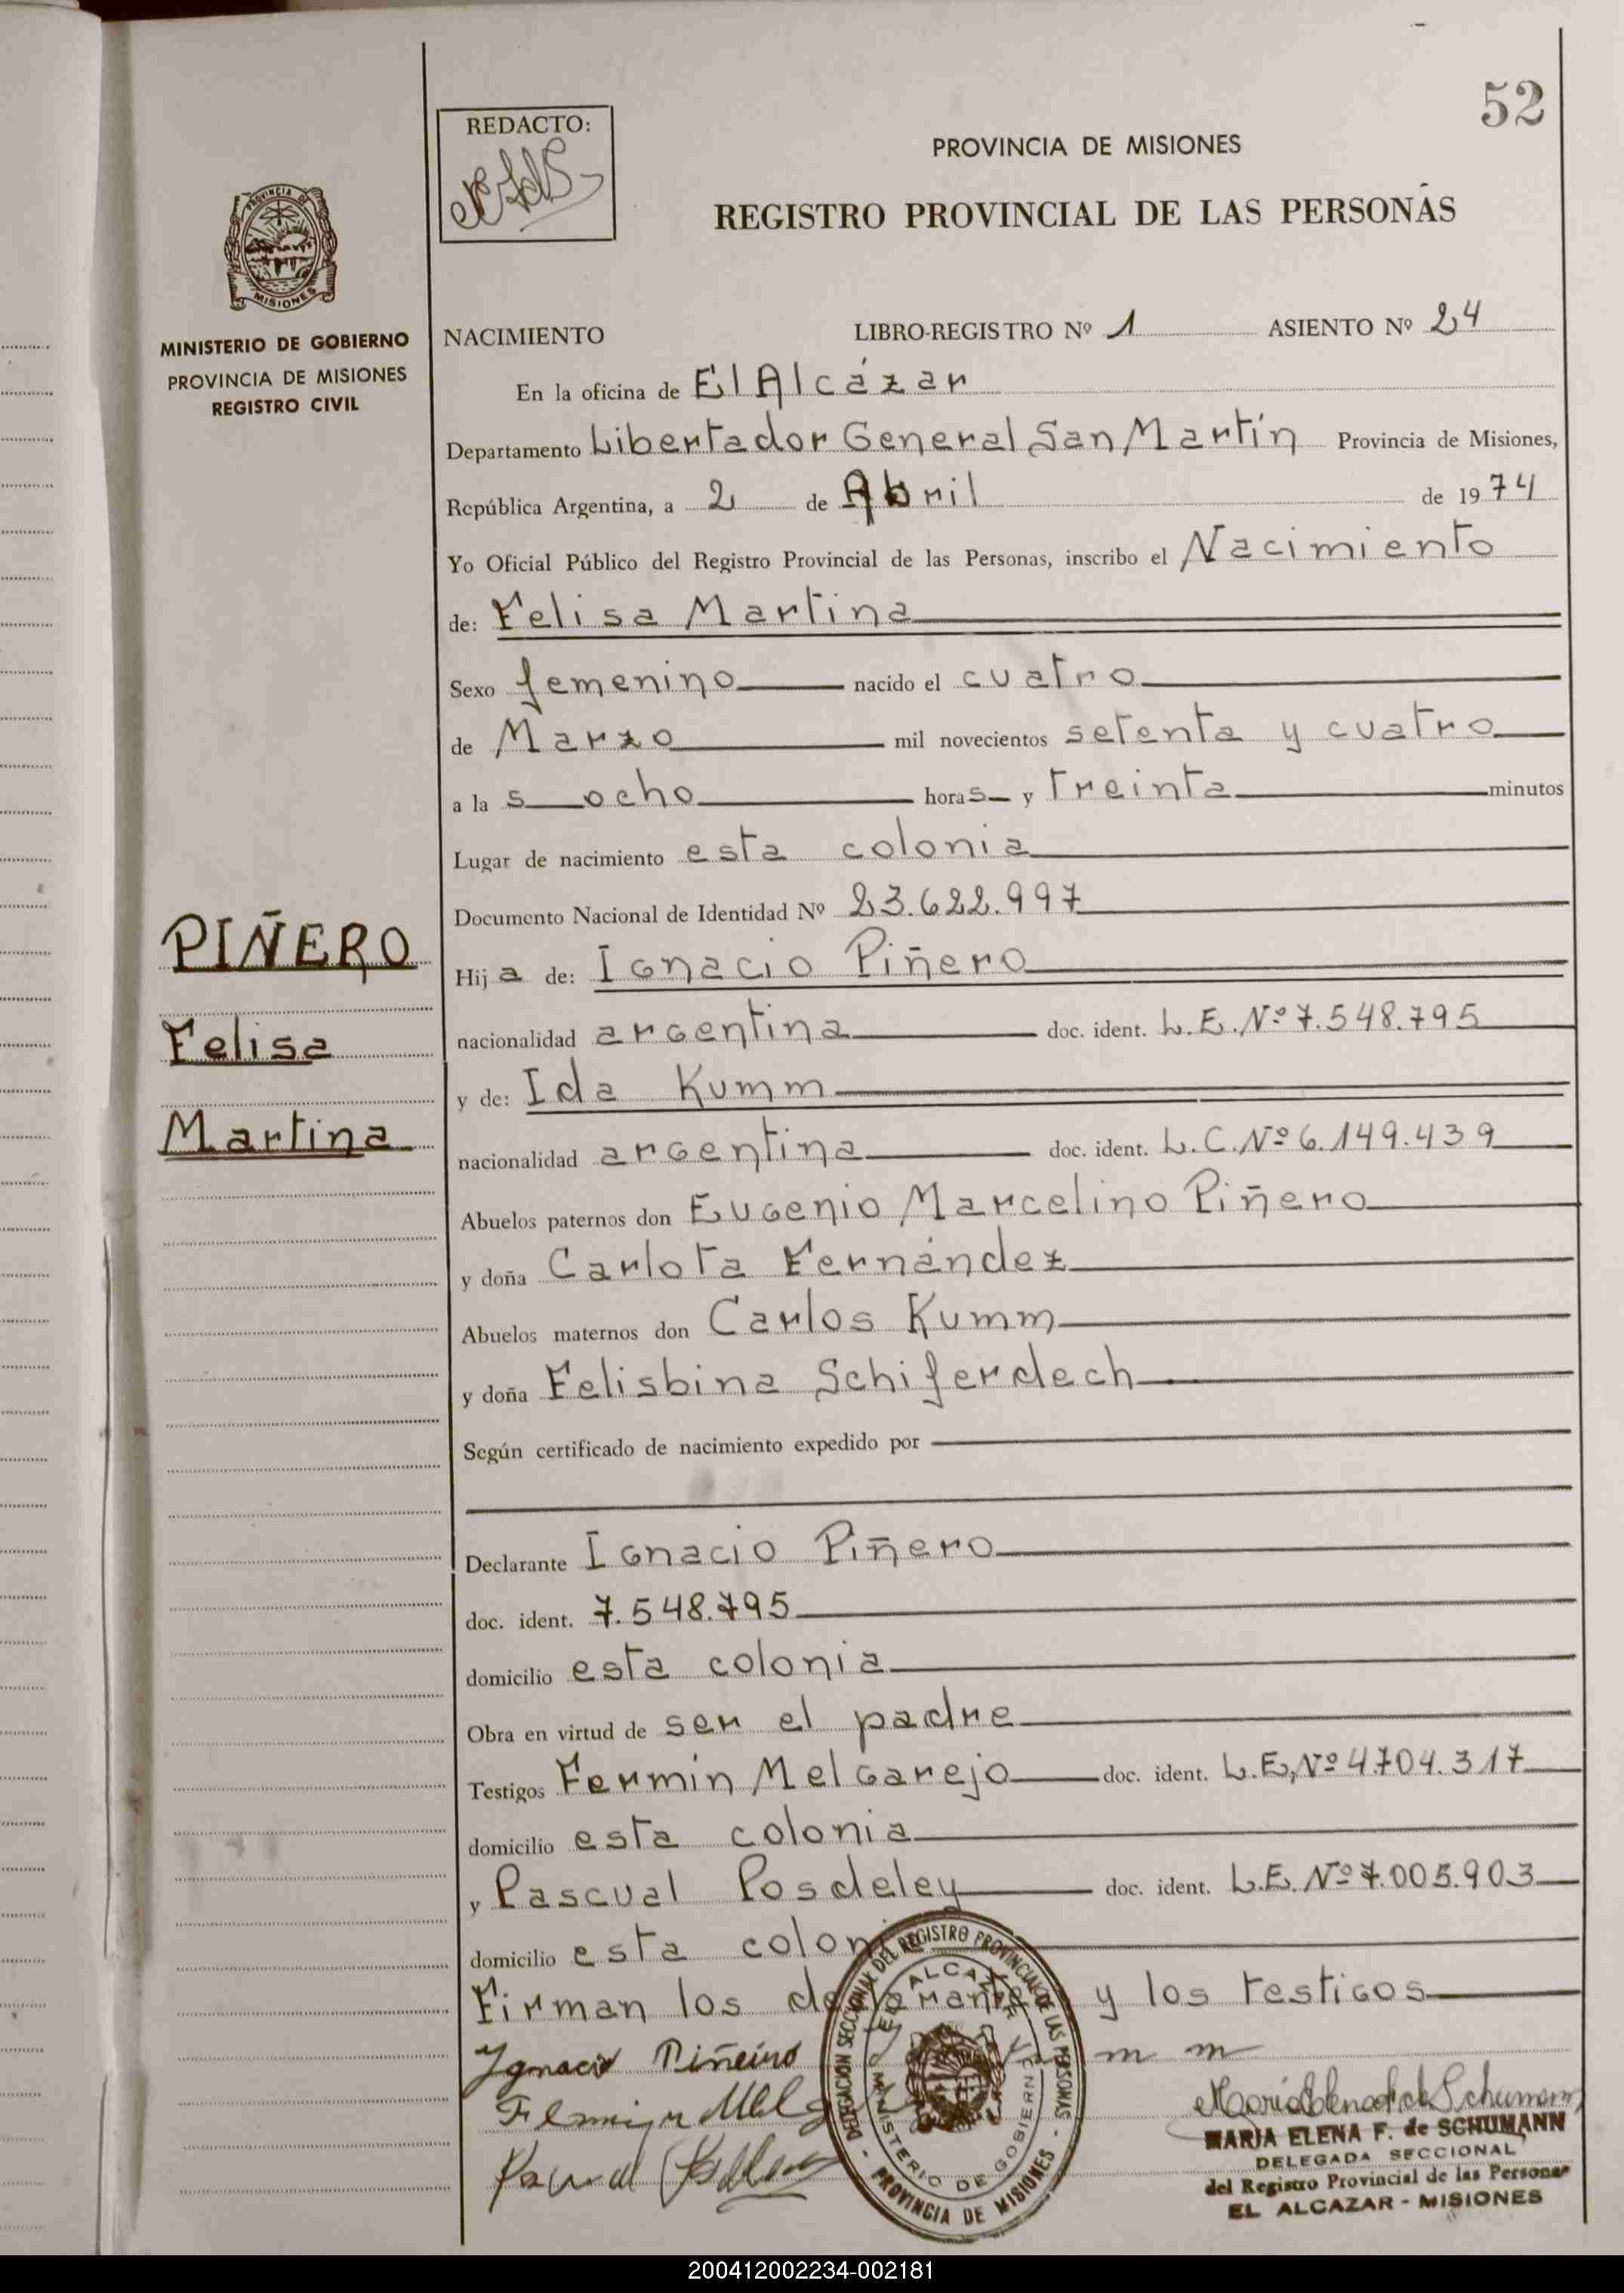 52
REDACTO:
PROVINCIA DE MISIONES
REGISTRO PROVINCIAL DE LAS PERSONAS
PROVINCIA DE
MISIONES
MINISTERIO DE GOBIERNO
PROVINCIA DE MISIONES
REGISTRO CIVIL
NACIMIENTO LIBRO-REGISTRO Nº 1 ASIENTO Nº 24
En la oficina de El Alcázar
Departamento Libertador General San Martín Provincia de Misiones,
República Argentina, a 2 de Abril de 1974
Yo Oficial Público del Registro Provincial de las Personas, inscribo el Nacimiento
de: Felisa Martina
Sexo femenino nacido el cuatro
de Marzo mil novecientos setenta y cuatro
a la s ocho horas y treinta minutos
Lugar de nacimiento esta colonia
Documento Nacional de Identidad Nº 23.622.997
PIÑERO
Felisa
Martina
Hija de: Ignacio Piñero
nacionalidad argentina doc. ident. L.E.Nº 7.548.795
y de: Ida Kumm
nacionalidad argentina doc. ident. L.C.Nº 6.149.439
Abuelos paternos don Eugenio Marcelino Piñero
y doña Carlota Fernández
Abuelos maternos don Carlos Kumm
y doña Felisbina Schiferdech
Según certificado de nacimiento expedido por
Declarante Ignacio Piñero
doc. ident. 7.548.795
domicilio esta colonia
Obra en virtud de ser el padre
Testigos Fermín Melgarejo doc. ident. L.E,Nº 4.704.317
domicilio esta colonia
y Pascual Posdeley doc. ident. L.E. Nº 7.005.903
domicilio esta colonia
Firman los declarantes y los testigos
Ignacio Piñeiro
DELEGACIÓN SECCIONAL DEL REGISTRO PROVINCIAL DE LAS PERSONAS - PROVINCIA DE MISIONES -
EL ALCAZAR
MINISTERIO DE GOBIERNO
MARIA ELENA F. de SCHUMANN
DELEGADA SECCIONAL
del Registro Provincial de las Personas
EL ALCAZAR - MISIONES
200412002234-002181